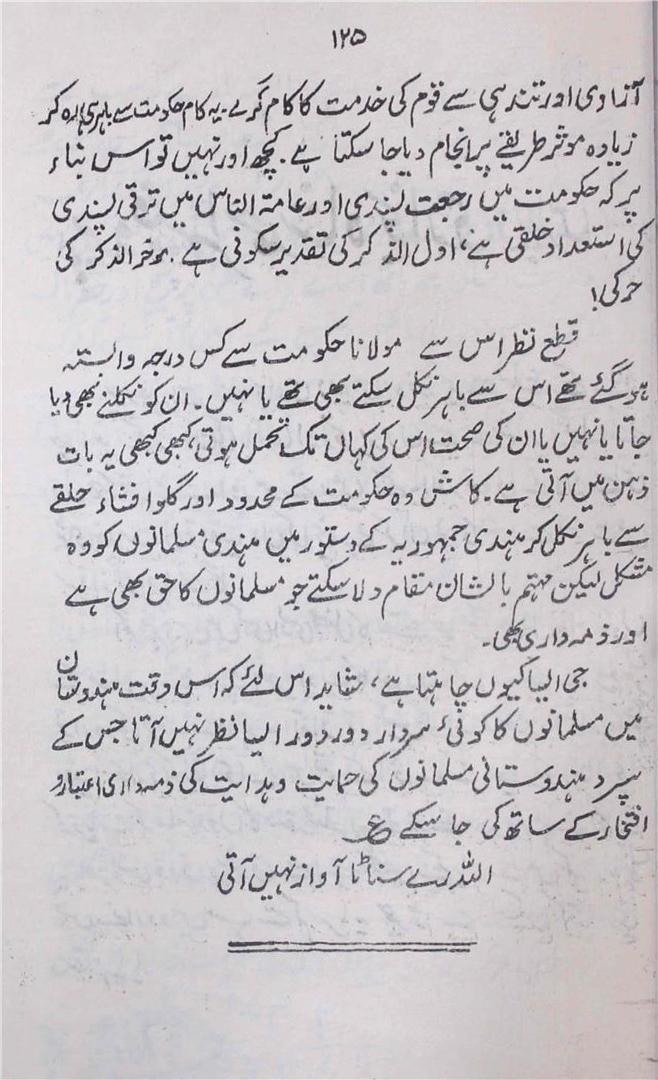 ۱۲۵
آزادی اور تندہی سے قوم کی خدمت کا کام کرے۔ یہ کام حکومت سے باہر ہی رہ کر
زیادہ موثر طریقے پر انجام دیا جا سکتا ہے۔ کچھ اور نہیں تو اس بناء
پر کہ حکومت میں رجعت پسندی اور عامۃ الناس میں ترقی پسندی
کی استعداد خلقی ہے، اول الذکر کی تقدیر سکونی ہے۔ موخر الذکر کی
حرکی!
قطع نظر اس سے مولانا حکومت سے کس درجہ وابستہ
ہو گئے تھے اس سے باہر نکل سکتے بھی تھے یا نہیں۔ ان کو نکلنے بھی دیا
جاتا یا نہیں یا ان کی صحت اس کی کہاں تک متحمل ہوتی، کبھی کبھی یہ بات
ذہن میں آتی ہے۔ کاش وہ حکومت کے محدود اور گلو افشاء حلقے
سے باہر نکل کر ہندی جمہوریہ کے دستور میں ہندی مسلمانوں کو وہ
مشکل لیکن مہتم بالشان مقام دلا سکتے جو مسلمانوں کا حق بھی ہے
اور ذمہ داری بھی۔
جی ایسا کیوں چاہتا ہے، شاید اس لئے کہ اس وقت ہندوستان
میں مسلمانوں کا کوئی سردار دور دور ایسا نظر نہیں آتا جس کے
سپرد ہندوستانی مسلمانوں کی حمایت و ہدایت کی ذمہ داری اعتبار و
افتخار کے ساتھ کی جا سکے ع
اللہ رے سناٹا آواز نہیں آتی